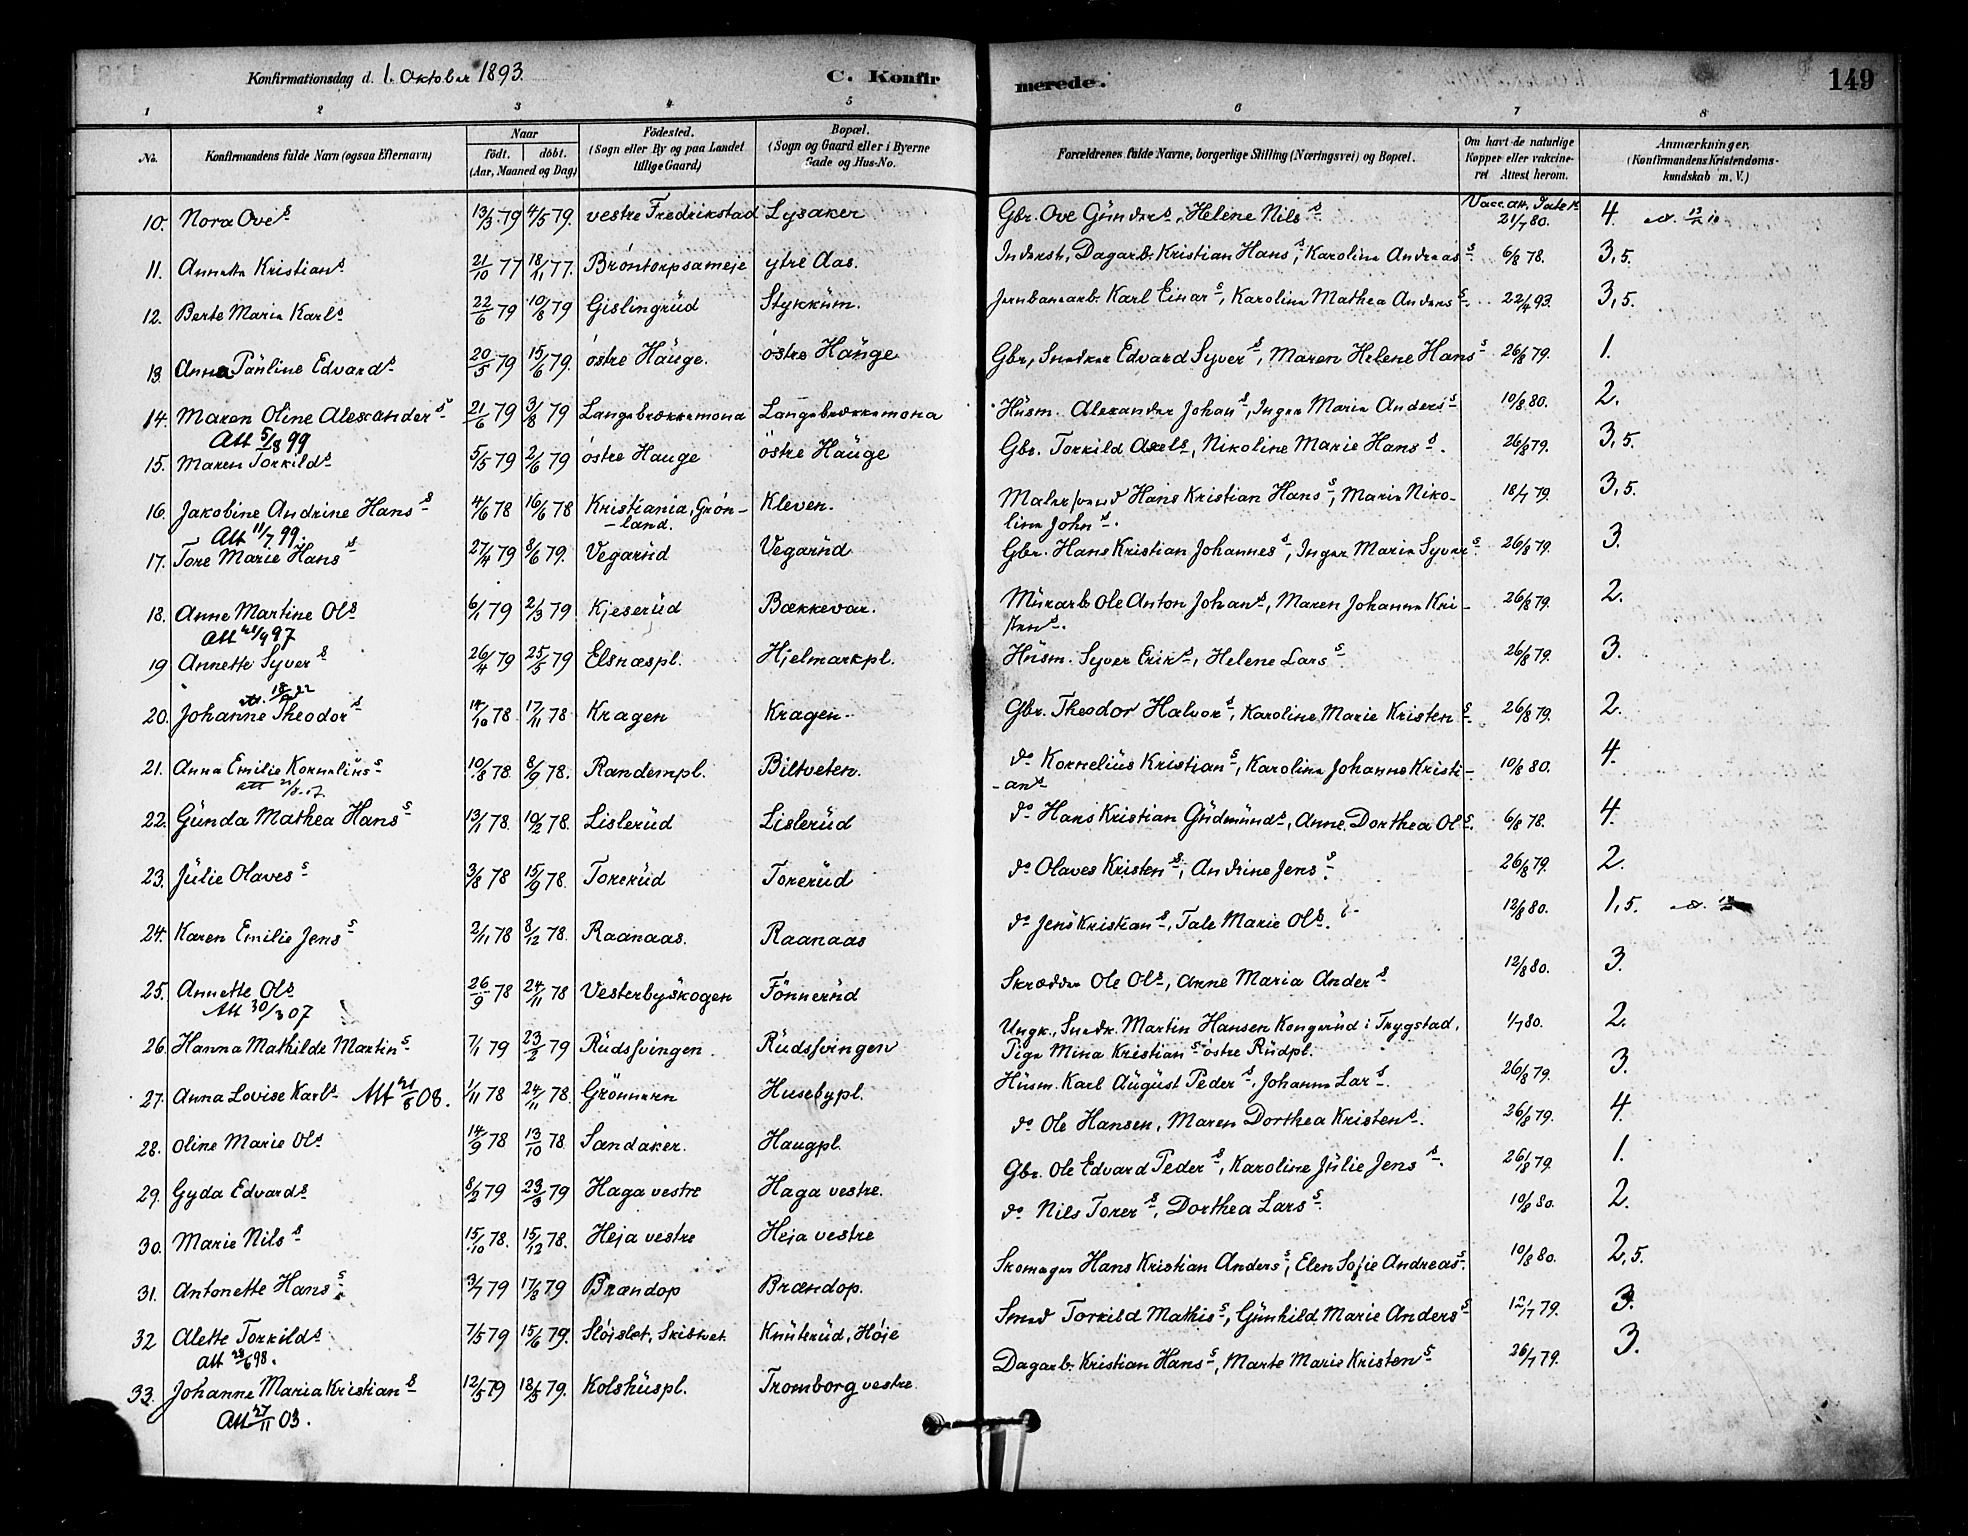 Konfirmationsdag d. 1. Oktober 1893. C. Konfirmerede. 149
1 2 3 4 5 6 7 8
No. Konfirmandens fulde Navn (ogsaa Efternavn) Naar födt. döbt. (Aar, Maaned og Dag) Födested. (Sogn eller By og paa Landet tillige Gaard) Bopæl. (Sogn og Gaard eller i Byerne Gade og Hus-No. Forældrenes fulde Navne, borgerlige Stilling (Næringsvei) og Bopæl. Om havt de naturlige Kopper eller vakcineret Attest herom. Anmærkninger. (Konfirmandens Kristendomskundskab m. V.)
10. Nora Oves 13/3 79 4/5 79. vestre Fredrikstad Lysaker Gbr. Ove Gunders, Helene Nils Vacc. att. Dato 21/7 80. 4.
11. Annette Kristians 21/10 77 18/11 77. Bröntorpsameje ytre Aas. Inderst, Dagarb. Kristian Hans, Karoline Andreas 6/8 78. 3,5.
12. Berte Marie Karls 22/6 79 10/8 79 Gislingrud Stykkum. Jernbanearb. Karl Einar, Karoline Mathea Anders 22/4 93. 3,5.
13. Anna Pauline Edvards 20/5 79 15/6 79. östre Hauge. östre Hauge Gbr, Snedker Edvard Syver, Maren Helene Hans 26/8 79. 1.
14. Maren Oline Alexanders 21/6 79 3/8 79 Langebrækkemona Langebrækkemona Husm. Alexander Johans, Inger Marie Anders 10/8 80. 2.
Att 5/8 99
15. Maren Torkilds 5/5 79 2/6 79 östre Hauge östre Hauge Gbr. Torkild Axels, Nikoline Marie Hans. 26/8 79. 3,5.
16. Jakobine Andrine Hans 4/6 78 16/6 78 Kristiania, Grön- Kleven. Malersvend Hans Kristian Hans, Marie Niko- 18/7 79. 3,5.
-land. line Johns.
Att 11/7 99.
17. Tore Marie Hans 27/4 79 8/6 79. Vegarud Vegarud Gbr. Hans Kristian Johannes, Inger Marie Syver 26/8 79. 3.
18. Anne Martine Ols 6/1 79 2/3 79 Kjeserud Bækkevar. Murarb. Ole Anton Johans, Maren Johanne Kri- 26/8 79. 2.
stens.
Att 21/9 97
19 Annette Syvers 26/4 79 25/5 79 Elsnæspl. Hjelmarkpl. Husm. Syver Eriks, Helene Lars 26/8 79. 3.
20. Johanne Theodors 14/10 78 17/11 78 Kragen Kragen Gbr. Theodor Halvors, Karoline Marie Kristen 26/8 79. 2.
21. Anna Emilie Kornelius 10/8 78 8/9 78. Randempl. Biltveten. do Kornelius Kristians, Karoline Johanne Kristi- 10/8 80. 4.
-ans
22. Gunda Mathea Hans 13/1 78 10/2 78. Lislerud Lislerud do Hans Kristian Gudmunds, Anne Dorthea Ols. 6/8 78. 4.
23. Julie Olaves 3/8 78 15/9 78. Torerud Torerud do Olaves Kristens, Andrine Jens. 26/8 79. 2.
24. Karen Emilie Jens 2/11 78 8/12 78. Raanaas. Raanaas do Jens Kristians, Tale Marie Ols. 12/8 80. 1,5.
25. Annette Ols 26/9 78 24/11 78 Vesterbyskogen Fönnerud Skrædder Ole Ols, Anne Maria Anders 12/8 80. 3.
Att 30/3 07
26. Hanna Mathilde Martins 7/1 79 23/2 79 Rudssvingen. Rudssvingen Ungk., Snedk. Martin Hansen Kongerud i Trygstad, 1/7 80. 2.
Pige Mina Kristians östre Rudpl.
27. Anna Lovise Karls Att 21/6 08. 1/11 78 24/11 78. Grönneren Husebypl. Husm. Karl August Peders, Johanne Lars. 26/8 79. 3.
28. Oline Marie Ols 14/9 78 13/10 78 Sandaker. Haugpl. do Ole Hansen, Maren Dorthea Kristens. 26/8 79. 4.
29. Gyda Edvards 8/2 79 23/3 79 Haga vestre Haga vestre. Gbr. Ole Edvard Peders, Karoline Julie Jens. 26/8 79. 1.
30. Marie Nils 15/10 78. 15/12 78. Heja vestre Heja vestre do Nils Torers, Dorthea Lars. 10/8 80. 2.
31. Antonette Hans 3/7 79 17/8 79 Brændop Brændop. Skomager Hans Kristian Anders, Elen Sofie Andreas. 10/8 80. 2,5.
32 Alette Torkilds 7/5 79 15/6 79. Slöjslet, Skiptvet Knuterud, Höje Smed Torkild Mathis, Gunhild Marie Anders 12/7 79. 3.
Att 28/6 98.
33. Johanne Maria Kristians 12/5 79 18/5 79. Kolshuspl. Tromborg vestre Dagarb. Kristian Hans, Marte Marie Kristens 26/7 79. 3.
Att 27/11 03.